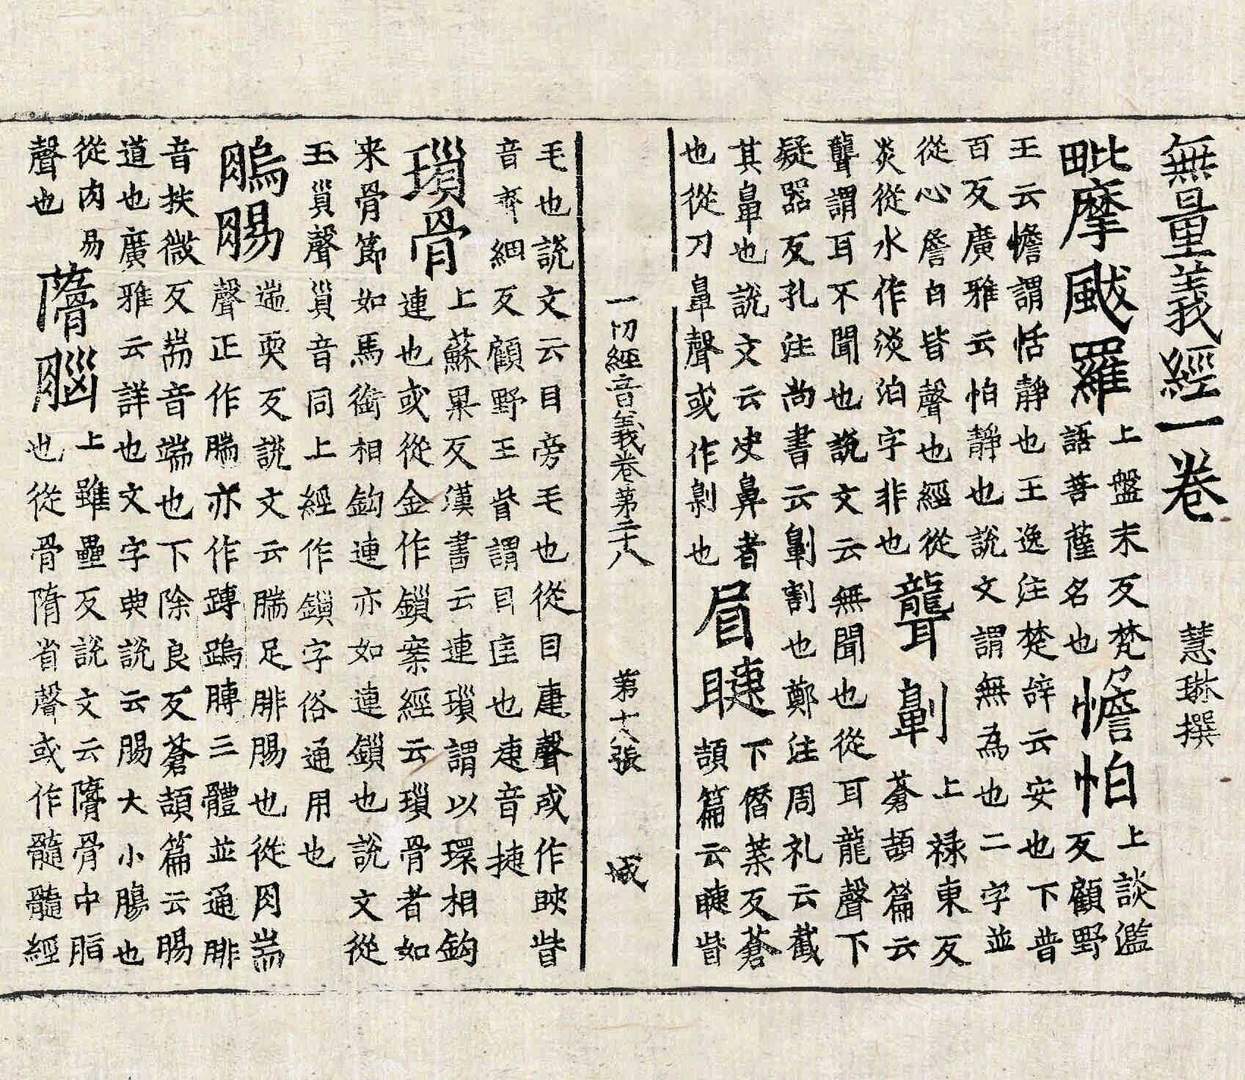 無量義經一卷 慧琳撰
毗摩颰羅
上盤末反梵
語菩薩名也
憺怕
上談濫
反顧野
王云憺謂恬靜也王逸注楚辝云安也下普
百反廣雅云怕靜也說文謂無為也二字並
從心詹白皆聲也經從
炎從水作淡泊字非也
聾劓
上祿東反
蒼頡篇云
聾謂耳不聞也說文云無聞也從耳龍聲下
疑器反孔注尚書云劓割也鄭注周礼云截
其鼻也說文云决鼻者
也從刀鼻聲或作劓也
眉睫
下僭葉反蒼
頡篇云睫眥
一切經音義卷第二十八 第十八張 域
毛也說文云目旁毛也從目疌聲或作䀹眥
音齊細反顧野王眥謂目厓也疌音捷
瑣骨
上蘇果反漢書云連瑣謂以環相鈎
連也或從金作鎖案經云瑣骨者如
来骨節如馬銜相鈎連亦如連鎖也說文從
玉𧴪聲𧴪音同上經作鎖字俗通用也
腸
遄耎反說文云腨足腓腸也從肉耑
聲正作腨亦作膞三體並通腓
音扶微反耑音端也下除良反蒼頡篇云腸
道也廣雅云詳也文字典說云腸大小腸也
從肉昜
聲也
髓腦
上雖壘反說文云髓骨中脂
也從骨隋省聲或作髓髓經